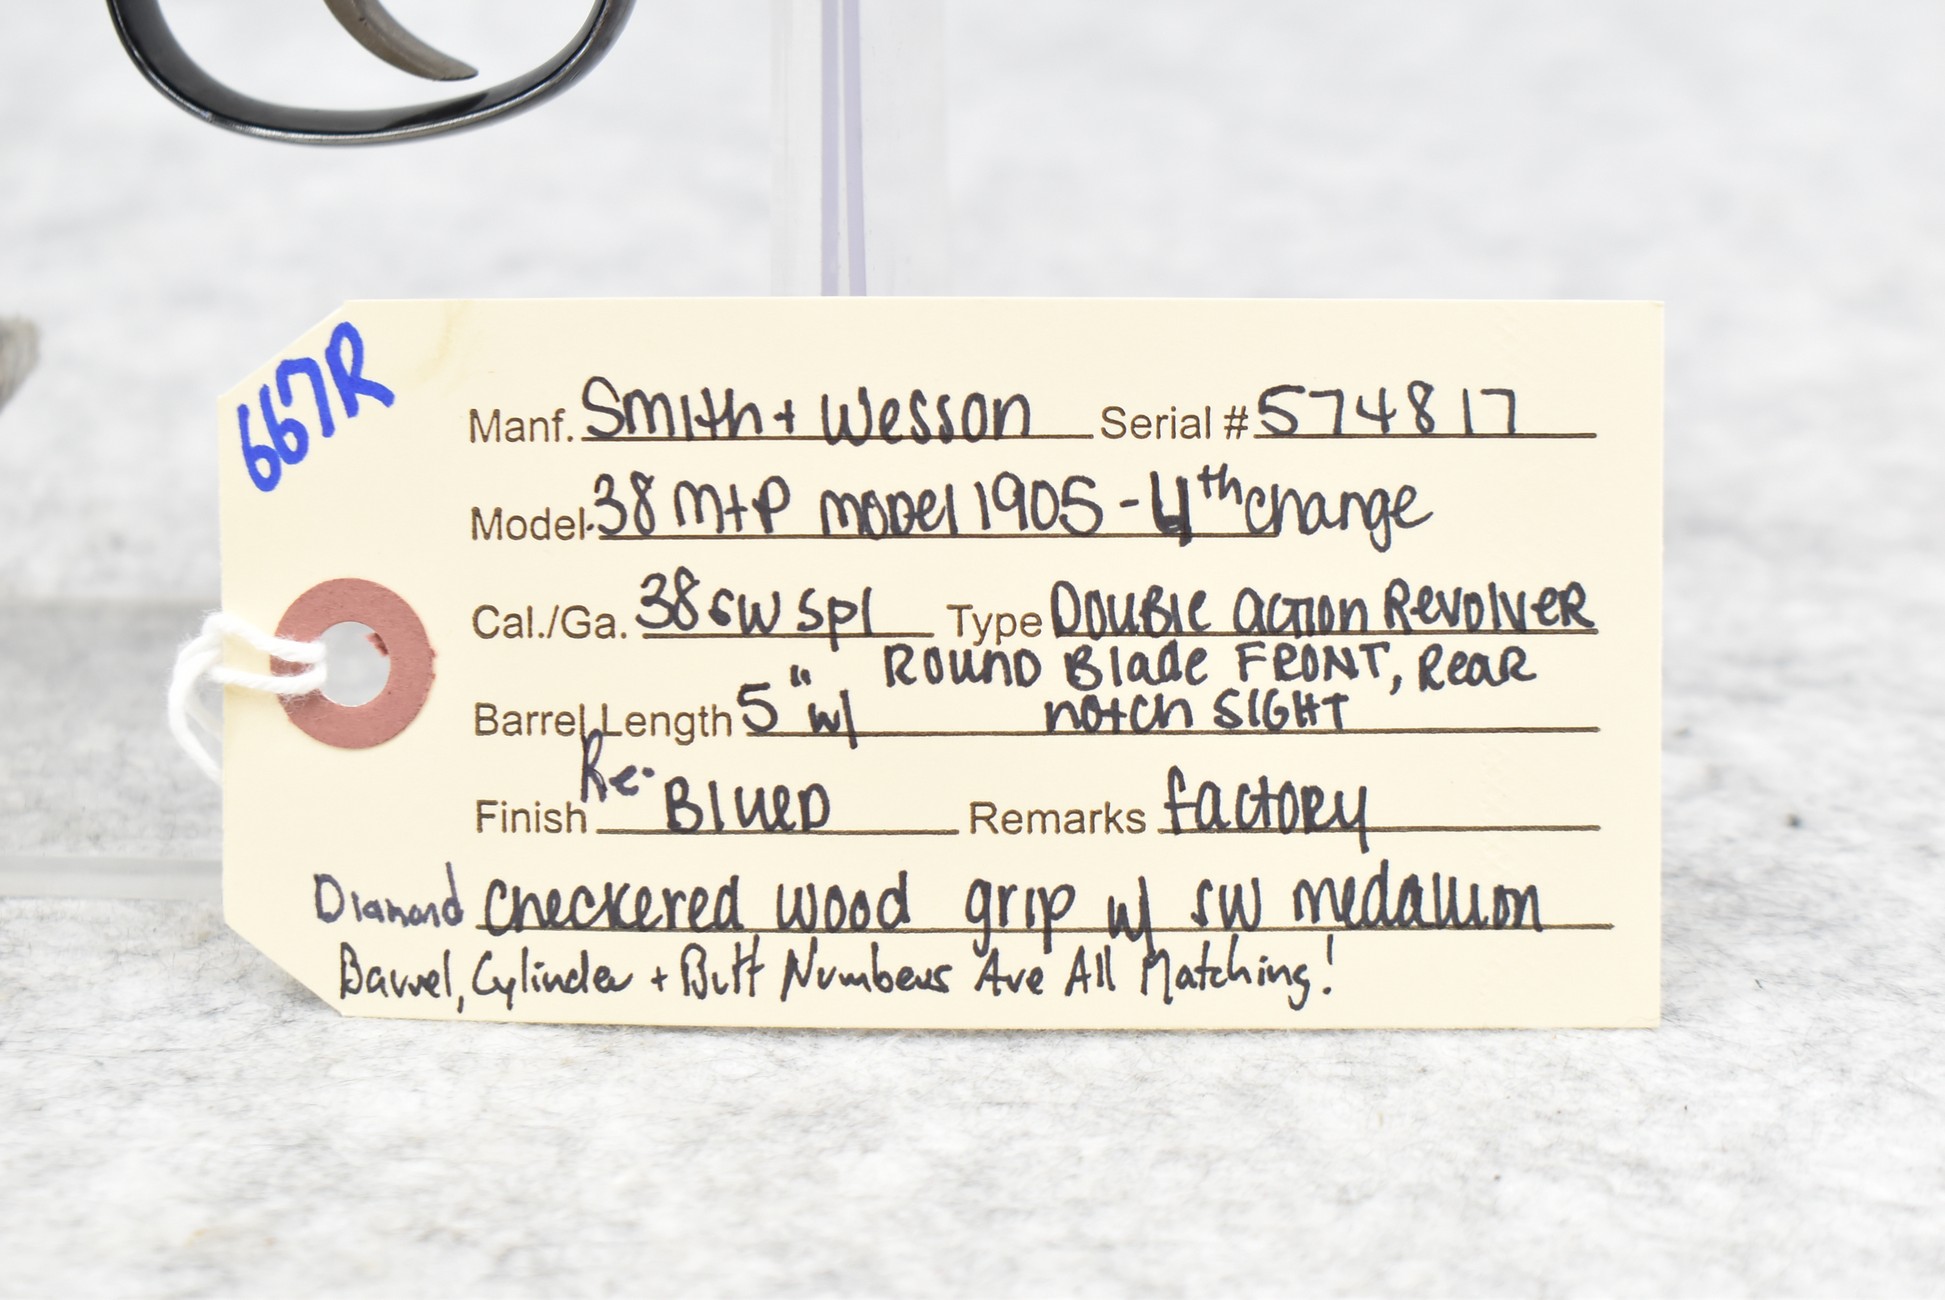 667R
Manf. Smith + Wesson Serial # 574817
Model. 38 M+P Model 1905 - 4th change
Cal./Ga. 38 SW Spl Type Double Action Revolver
Round Blade Front, Rear
Barrel Length 5" w/ notch SIGHT
Finish Re-Blued Remarks factory
Diamond checkered wood grip w/ SW medallion
Barrel, Cylinder + Butt Numbers Are All Matching!